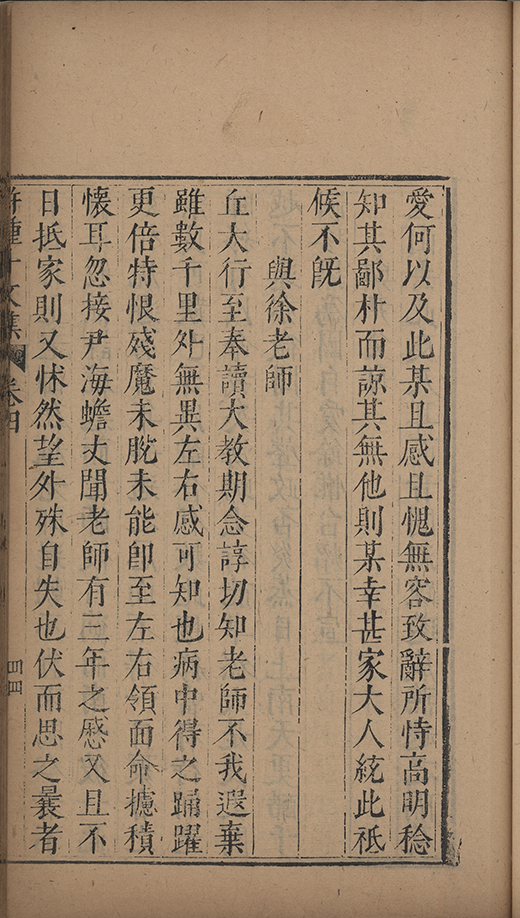 愛何以及此某且感且愧無容致辭所恃高明稔
知其鄙朴而諒其無他則某幸甚家大人統此祗
候不旣
與徐老師
丘大行至奉讀大教期念諄切知老師不我遐棄
雖數千里外無異左右感可知也病中得之踊躍
更倍特恨殘魔未脫未能卽至左右領面命攄積
懷耳忽接尹海蟾丈聞老師有三年之慼又且不
日抵家則又怵然望外殊自失也伏而思之曩者
許鍾斗文集 卷四 四四